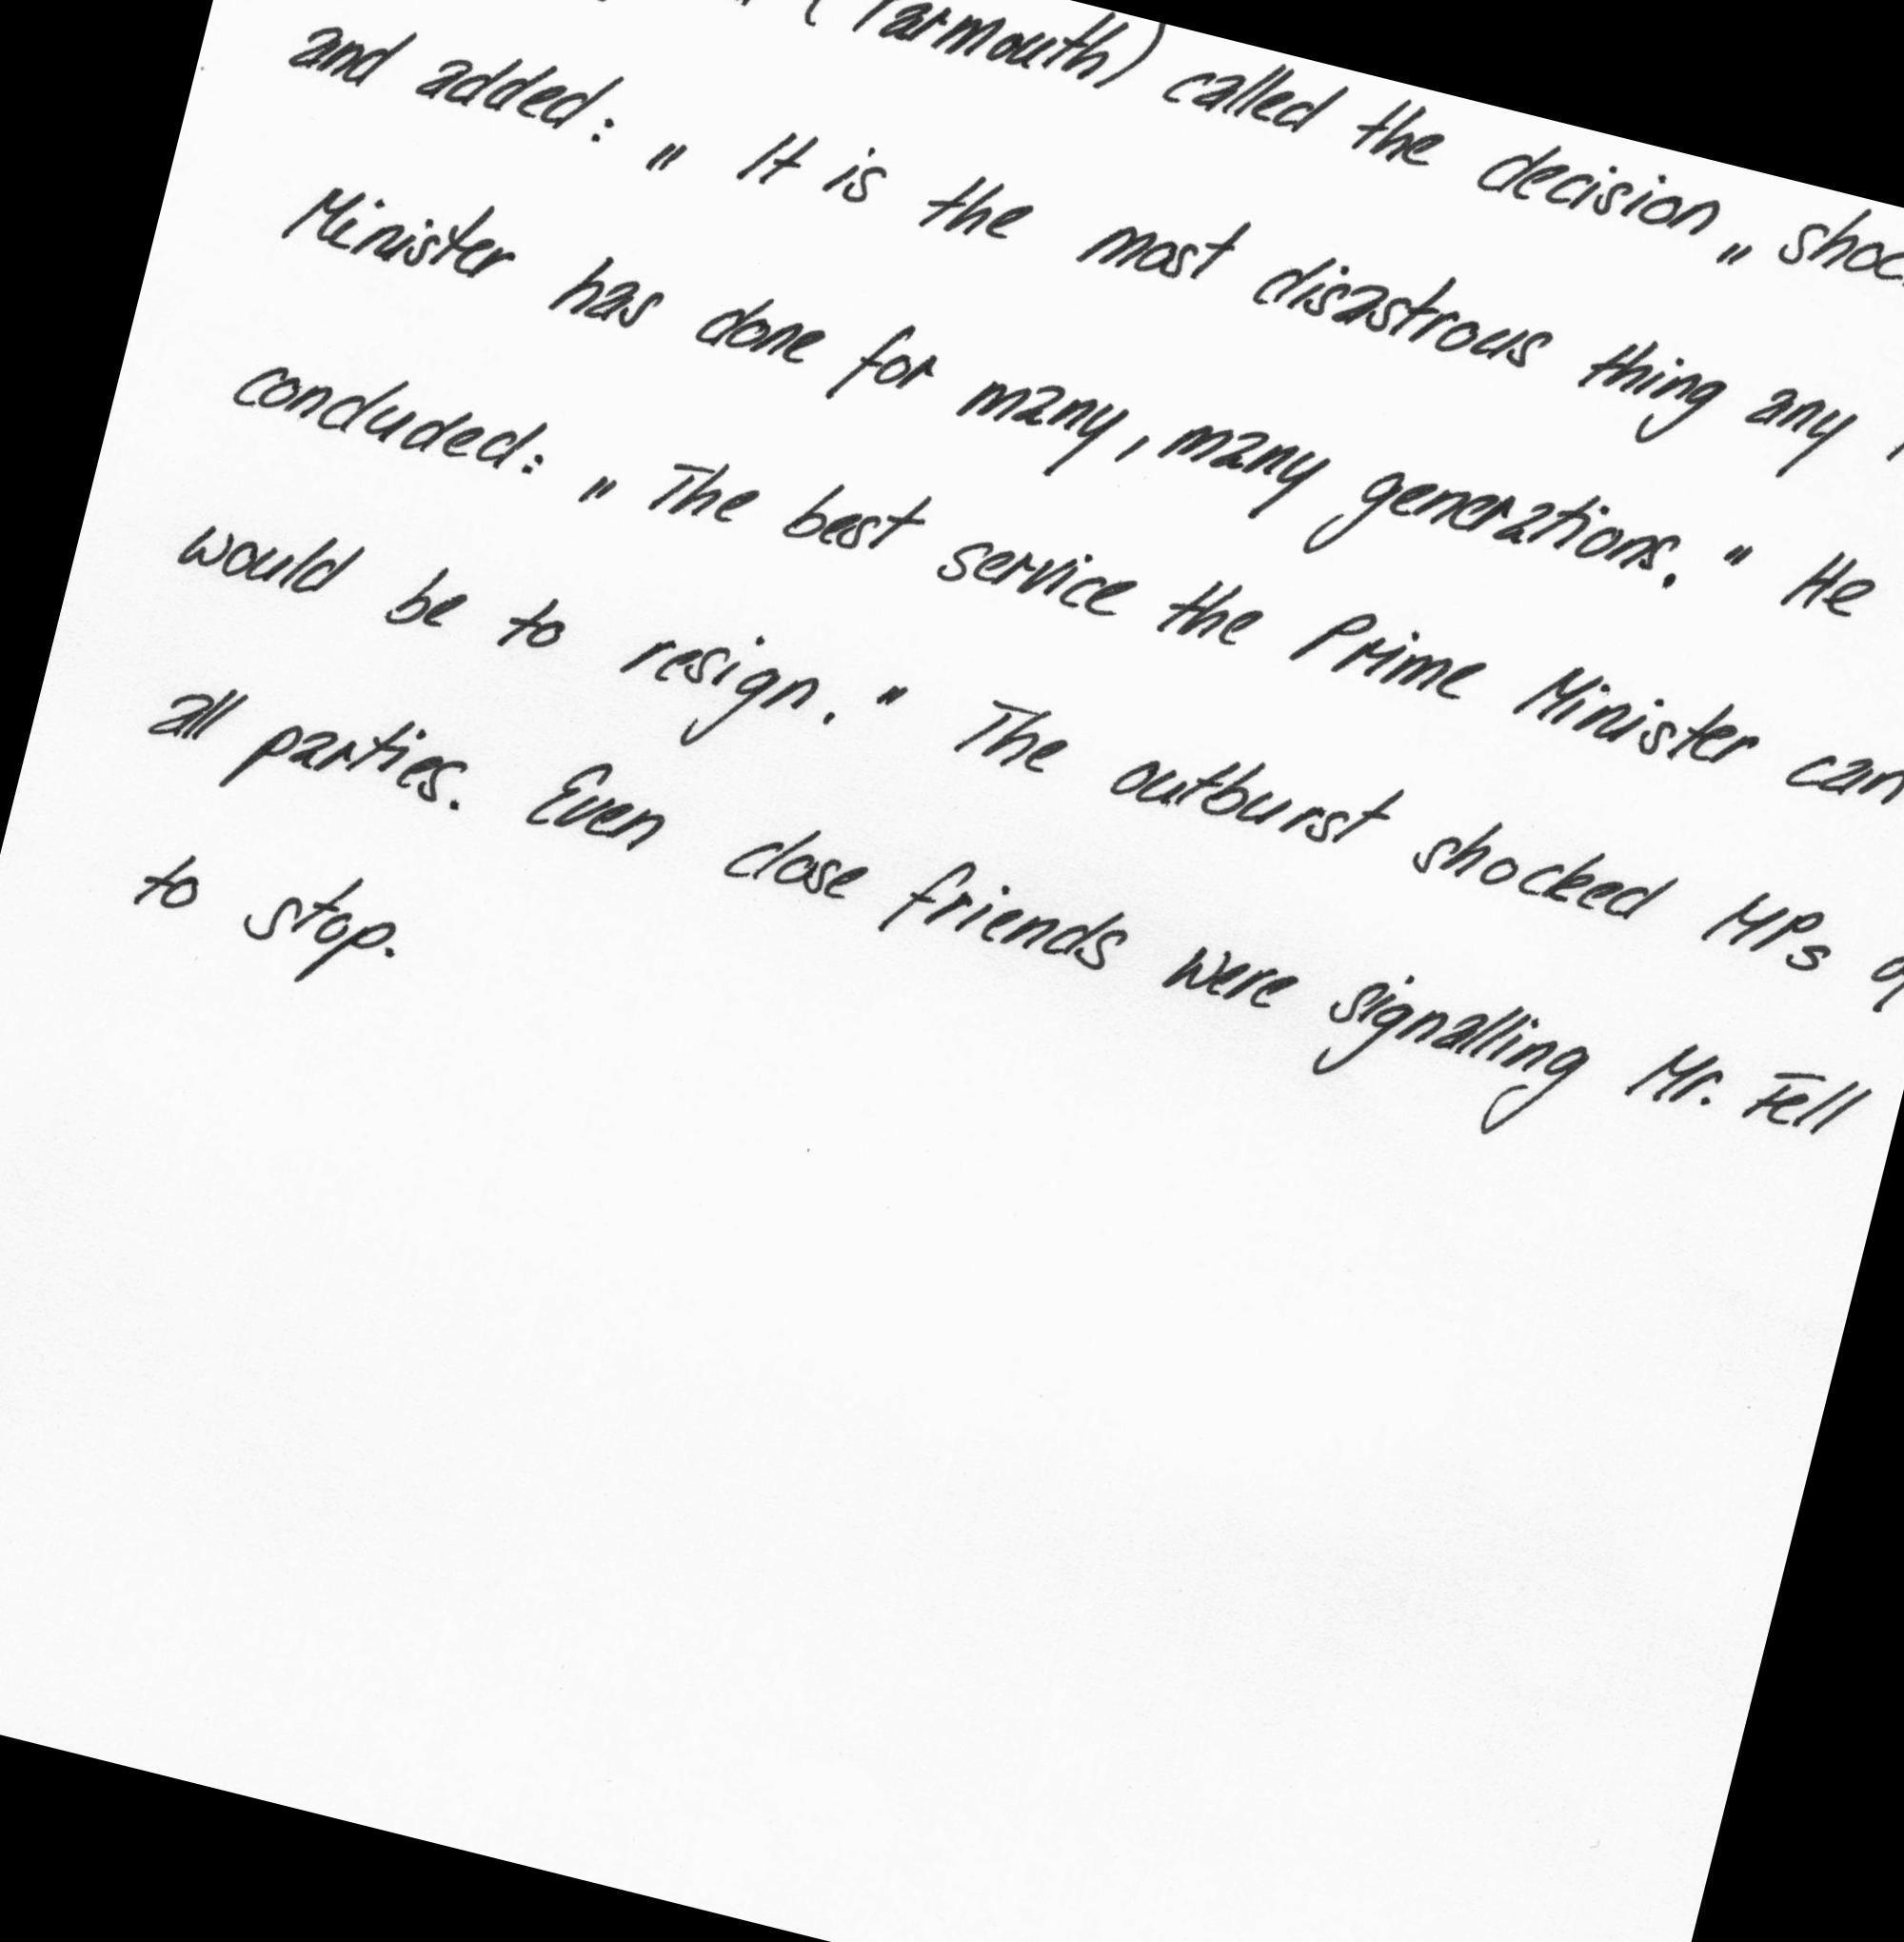 (Yarmouth) called the decision „
and added: „ It is the most disastrous thing any
Minister has done for many, many generations." He
concluded: „ The best service the Prime Minister can
would be to resign." The outburst shocked MPs
all parties. Even close friends were signalling Mr. Fell
to stop.